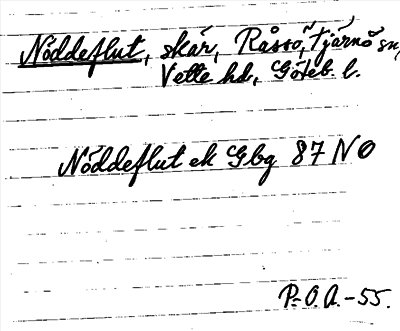 Nöddeflut, skär, Råssö, Tjärnö sn,
Vette hd, Göteb. l.
Nöddeflut ek Gbg 87 NO
P.O.A.-55.